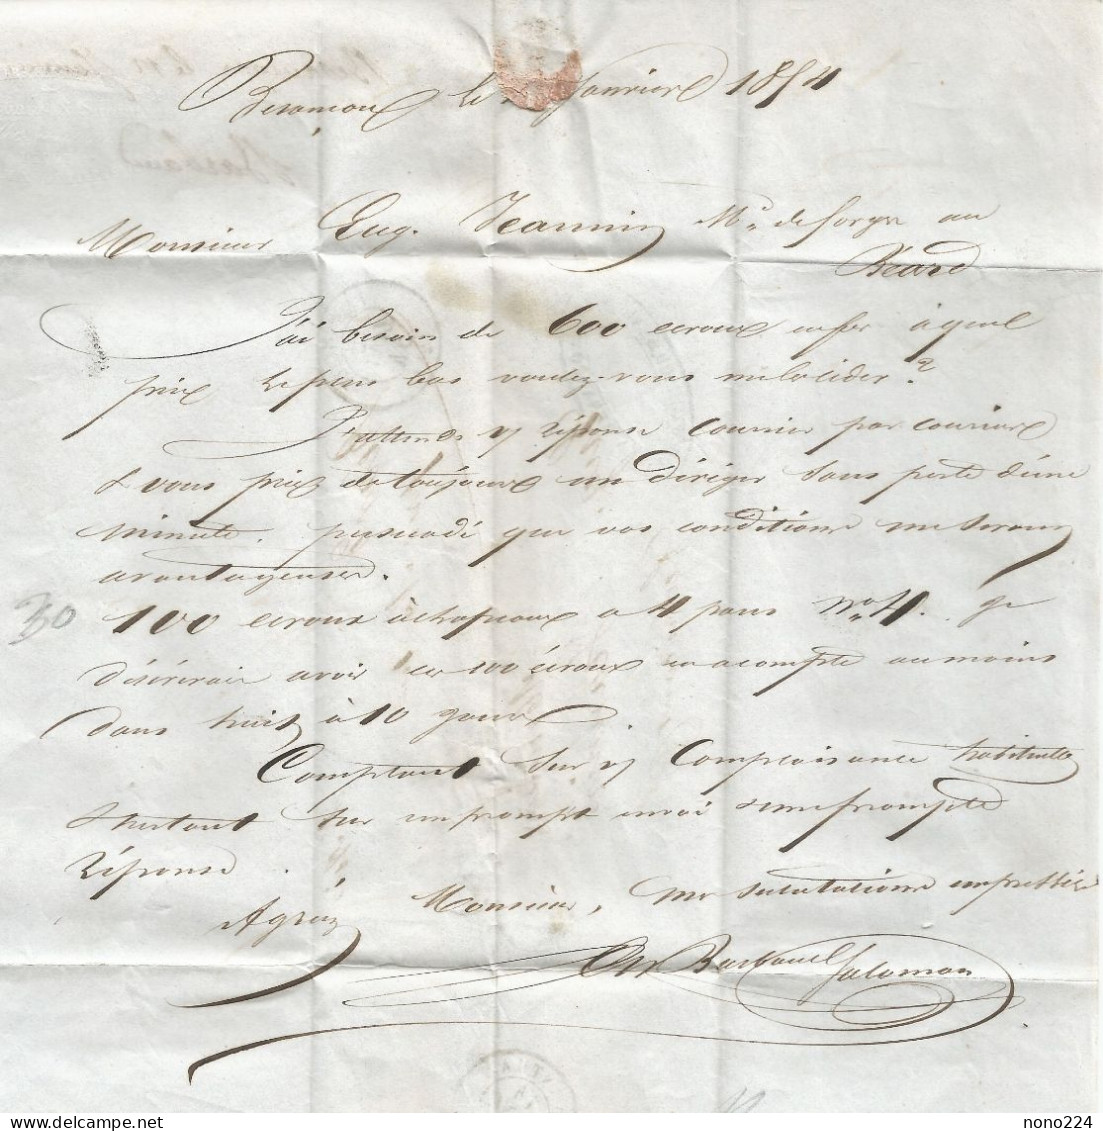 Besançon le Janvier 1854
Monsieur Eug. Jeannin Md. de forges au
Béard
J'ai besoin de 600 ecroux en fer à quel
prix le plus bas voulez-vous me les céder?
J'attends v/ réponse courrier par courrier
& vous prie de toujours en diriger sans perte d'une
minute. persuadé que vos conditions me seront
avantageuses.
30
100 ecroux à chapeaux a 4 pans No. 4. je
désirerais avoir ces 100 écroux en acompte au moins
dans huit à 10 jours.
Comptant sur v/ complaisance habituelle
& surtout sur un prompt envoi & une prompte
réponse.
Agréez Monsieur, mes salutations empressées
Barbaud Salomon
nono224